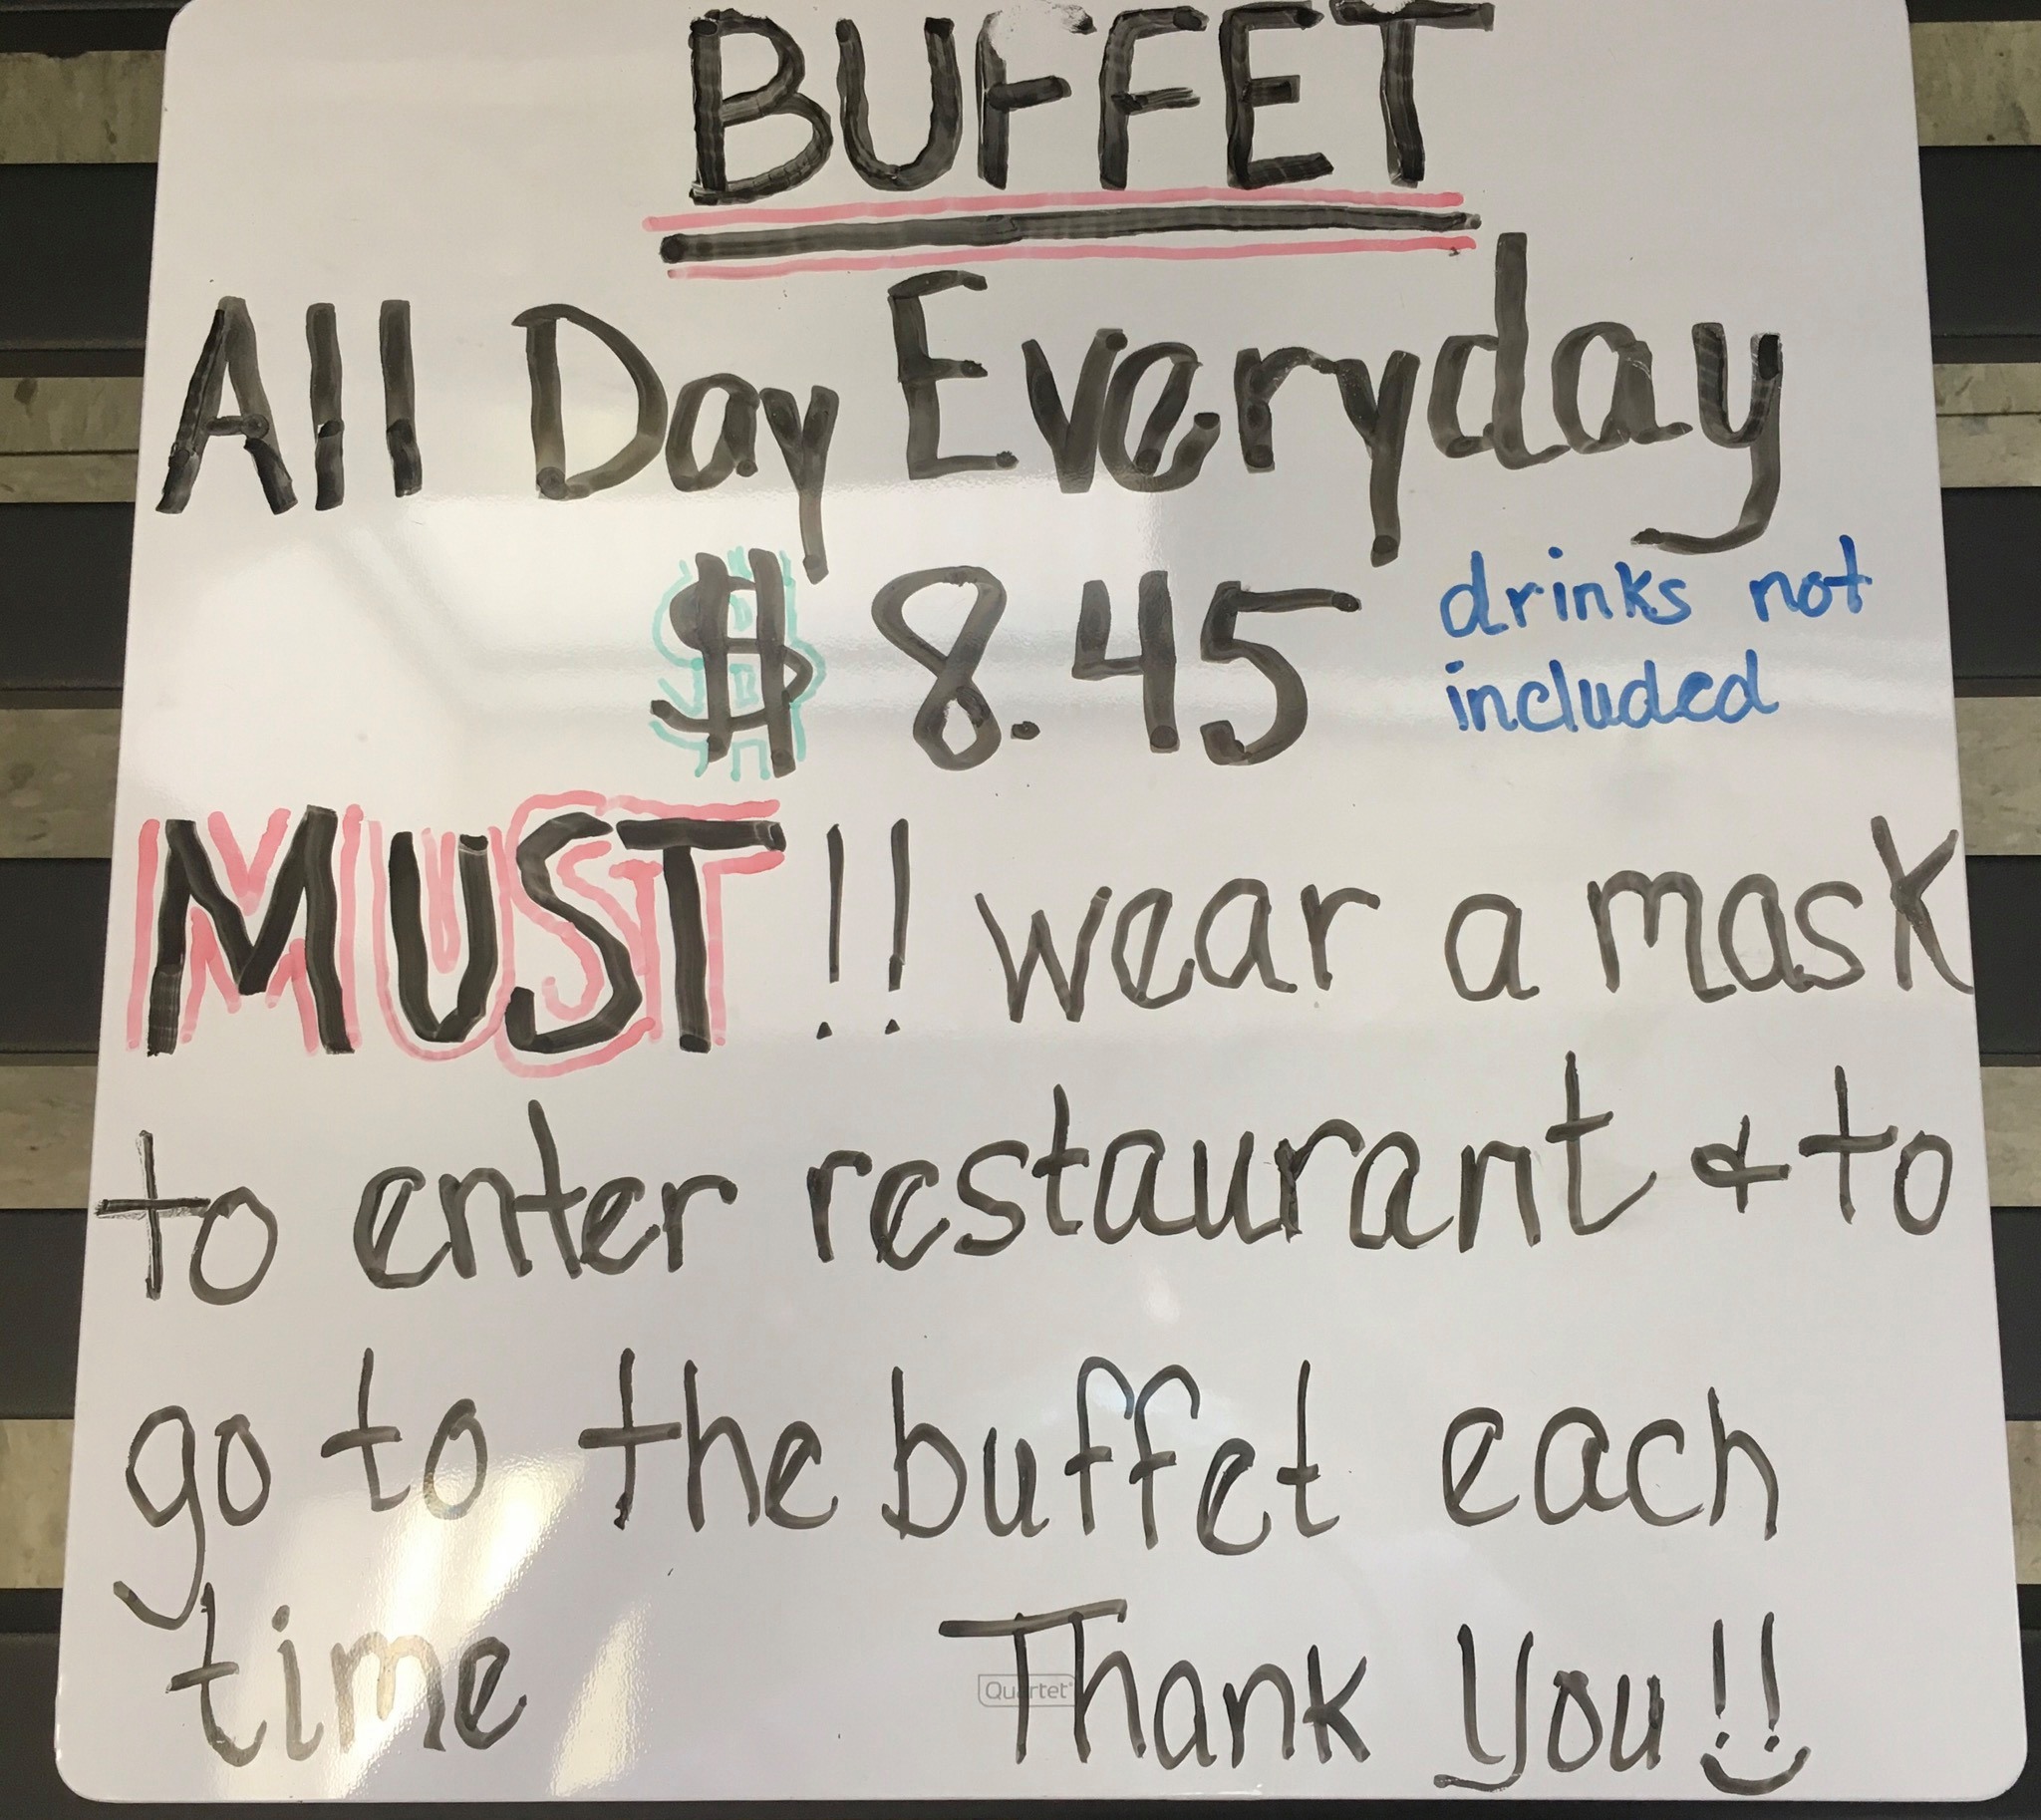 BUFFET
All Day Everyday
$8.45 drinks not
included
MUST!! wear a mask
to enter restaurant & to
go to the buffet each
time Thank You!!
Quartet